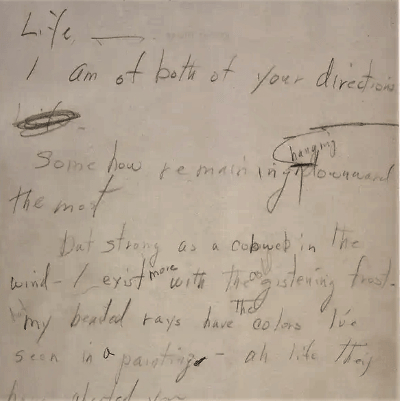 Life —
I am of both of your directions
Life
Somehow remaining hanging downward
the most
But strong as a cobweb in the
wind – I exist more with the cold glistening frost.
my beaded rays have the colors I've
seen in a painting – ah life they
have cheated you